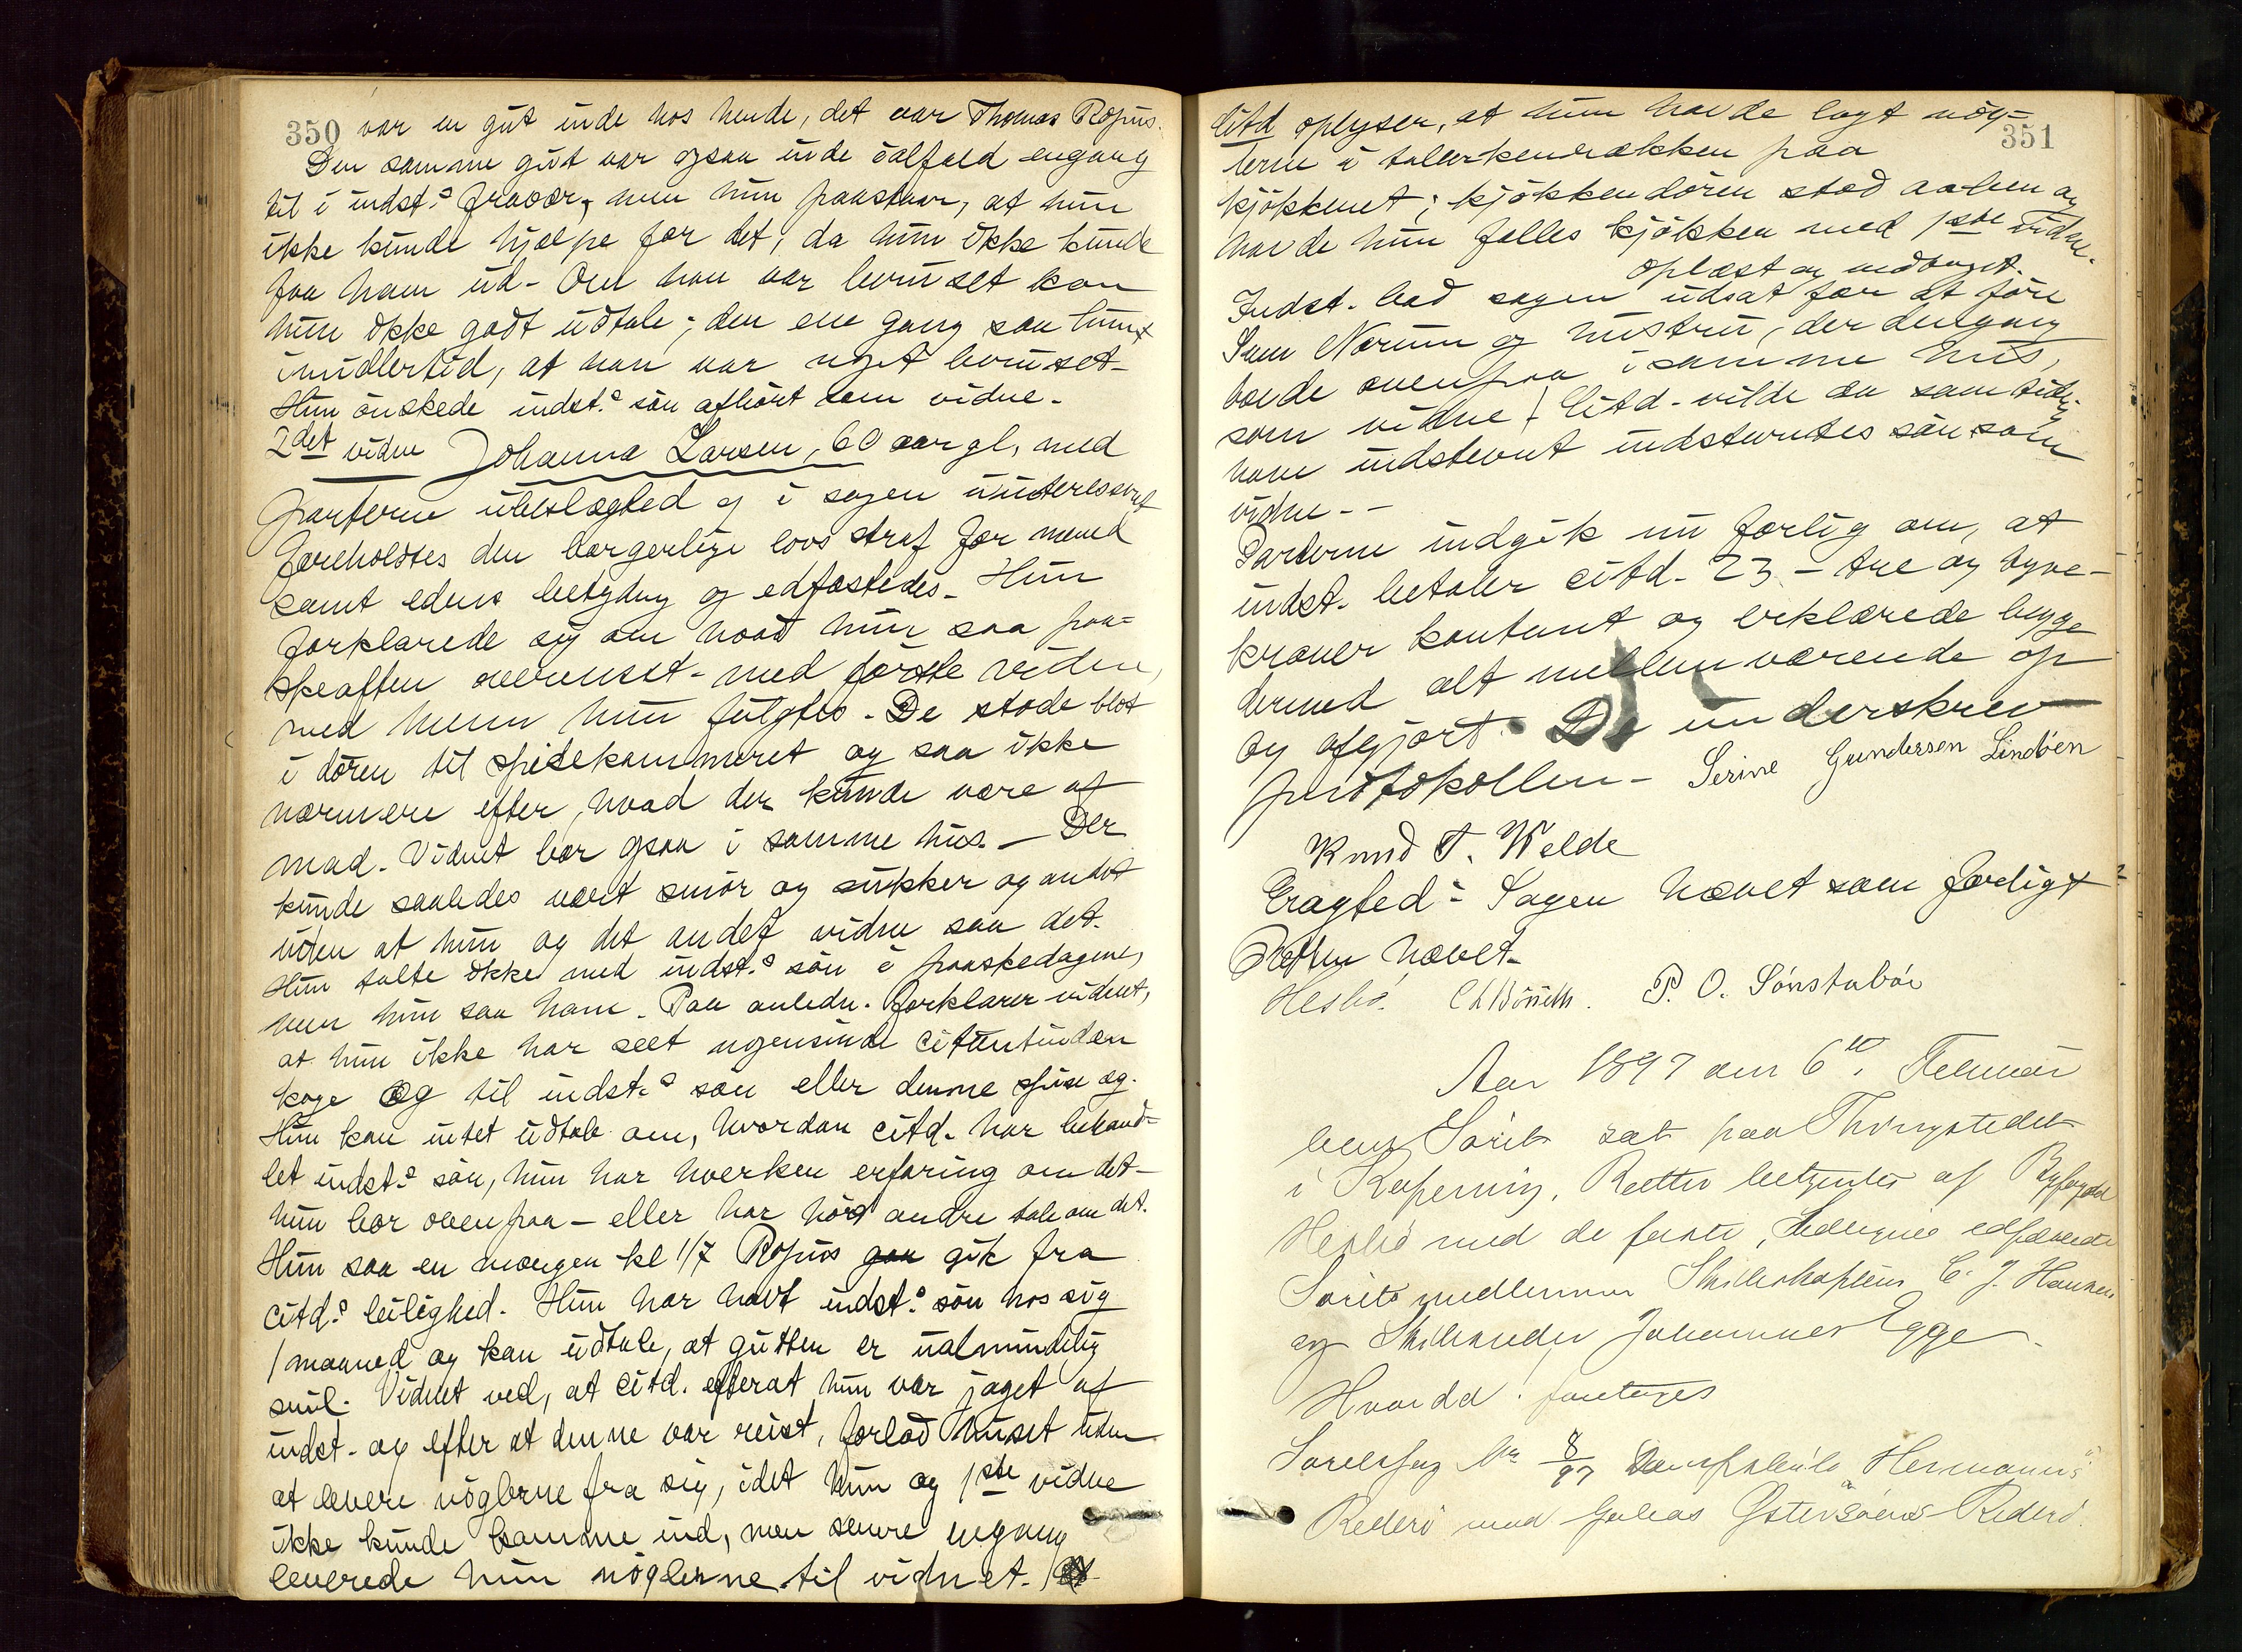 350 var en gut inde hos hende, det var Thomas Ropius.
Den samme gut var ogsaa inde ialfald engang
til i indst.s fravær, men hun paastaar, at hun
ikke kunde hjælpe for det, da hun ikke kunde
faa ham ud - Om han var beruset kan
hun ikke godt udtale; den ene gang saa hun
imidlertid, at han var noget beruset -
Hun ønskede indst.s søn afhørt som vidne -
2det vidne Johanna Larsen, 60 aar gl, med
parterne ubeslægted og i sagen uinteresseret
foreholdtes den borgerlige lovs straf for mened
samt edens betydning og edfæstedes - Hun
forklarede sig om hvad hun saa paa-
skeaften overenst. med første vidne,
med hvem hun fulgtes - De stode blot
i døren til spisekammeret og saa ikke
nærmere efter, hvad der kunde være af
mad. Vidnet bor ogsaa i samme hus - Der
kunde saaledes været smør og sukker og andet
uden at hun og det andet vidne saa det.
Hun talte ikke med indst.s søn i paaskedagene,
men hun saa ham. Paa anledn. forklarer vidnet,
at hun ikke har seet nogensinde citantinden
koge æg til indst.s søn eller denne spise æg.
Hun kan intet udtale om, hvordan citd. har behand-
let indst.s søn, hun har hverken erfaring om det -
hun bor ovenpaa - eller har hørt andre tale om det.
Hun saa en morgen kl 1/7 Ropius gaa gik fra
citd.s leilighed. Hun har havt indst.s søn hos sig
1 maaned og kan udtale, at gutten er ualmindelig
snil. Vidnet ved, at citd. efterat hun var jaget af
indst. og efter at denne var reist, forlod huset uden
at levere nøglerne fra sig, idet hun og 1ste vidne
ikke kunde komme ind, men senere engang
leverede hun nøglerne til vidnet.
351
Citd oplyser, at hun havde lagt nøg-
lerne i tallerkenrækken paa
kjøkkenet; kjøkkendøren stod aaben og
havde hun fælles kjøkken med 1ste vidne.
Oplæst og vedtaget.
Indst. bad sagen udsat for at føre
Sam Norum og hustru, der dengang
boede ovenpaa i samme hus,
som vidne. Citd. vilde da samtidig
have indstevnt indstevntes søn som
vidne - -
Parterne indgik nu forlig om, at
indst. betaler citd. 23 - tre og tyve -
kroner kontant og erklærede begge
dermed alt mellemværende op
og afgjort. De underskrev
protokollen - Serine Gundersen Lindøen
Knud T. Welde
Eragted: Sagen hævet som forligt
Retten hævet.
Hesbø. P. O. Sønstabøe
Aar 1897 den 6te Februar
blev Søret sat paa Thingstedet
i Kopervig, Retten betjentes af Byfogden
Hesbø med de faste, edfæstede
Søretsmedlemmer Skibskaptein C. J. Hansen
og Skibsreder Johannes Egge.
Hvorda! foretoges
Søretssag No 8/97 Dampskibet "Hermann's"
Rederi mod Galeas Østersøens Rederi.